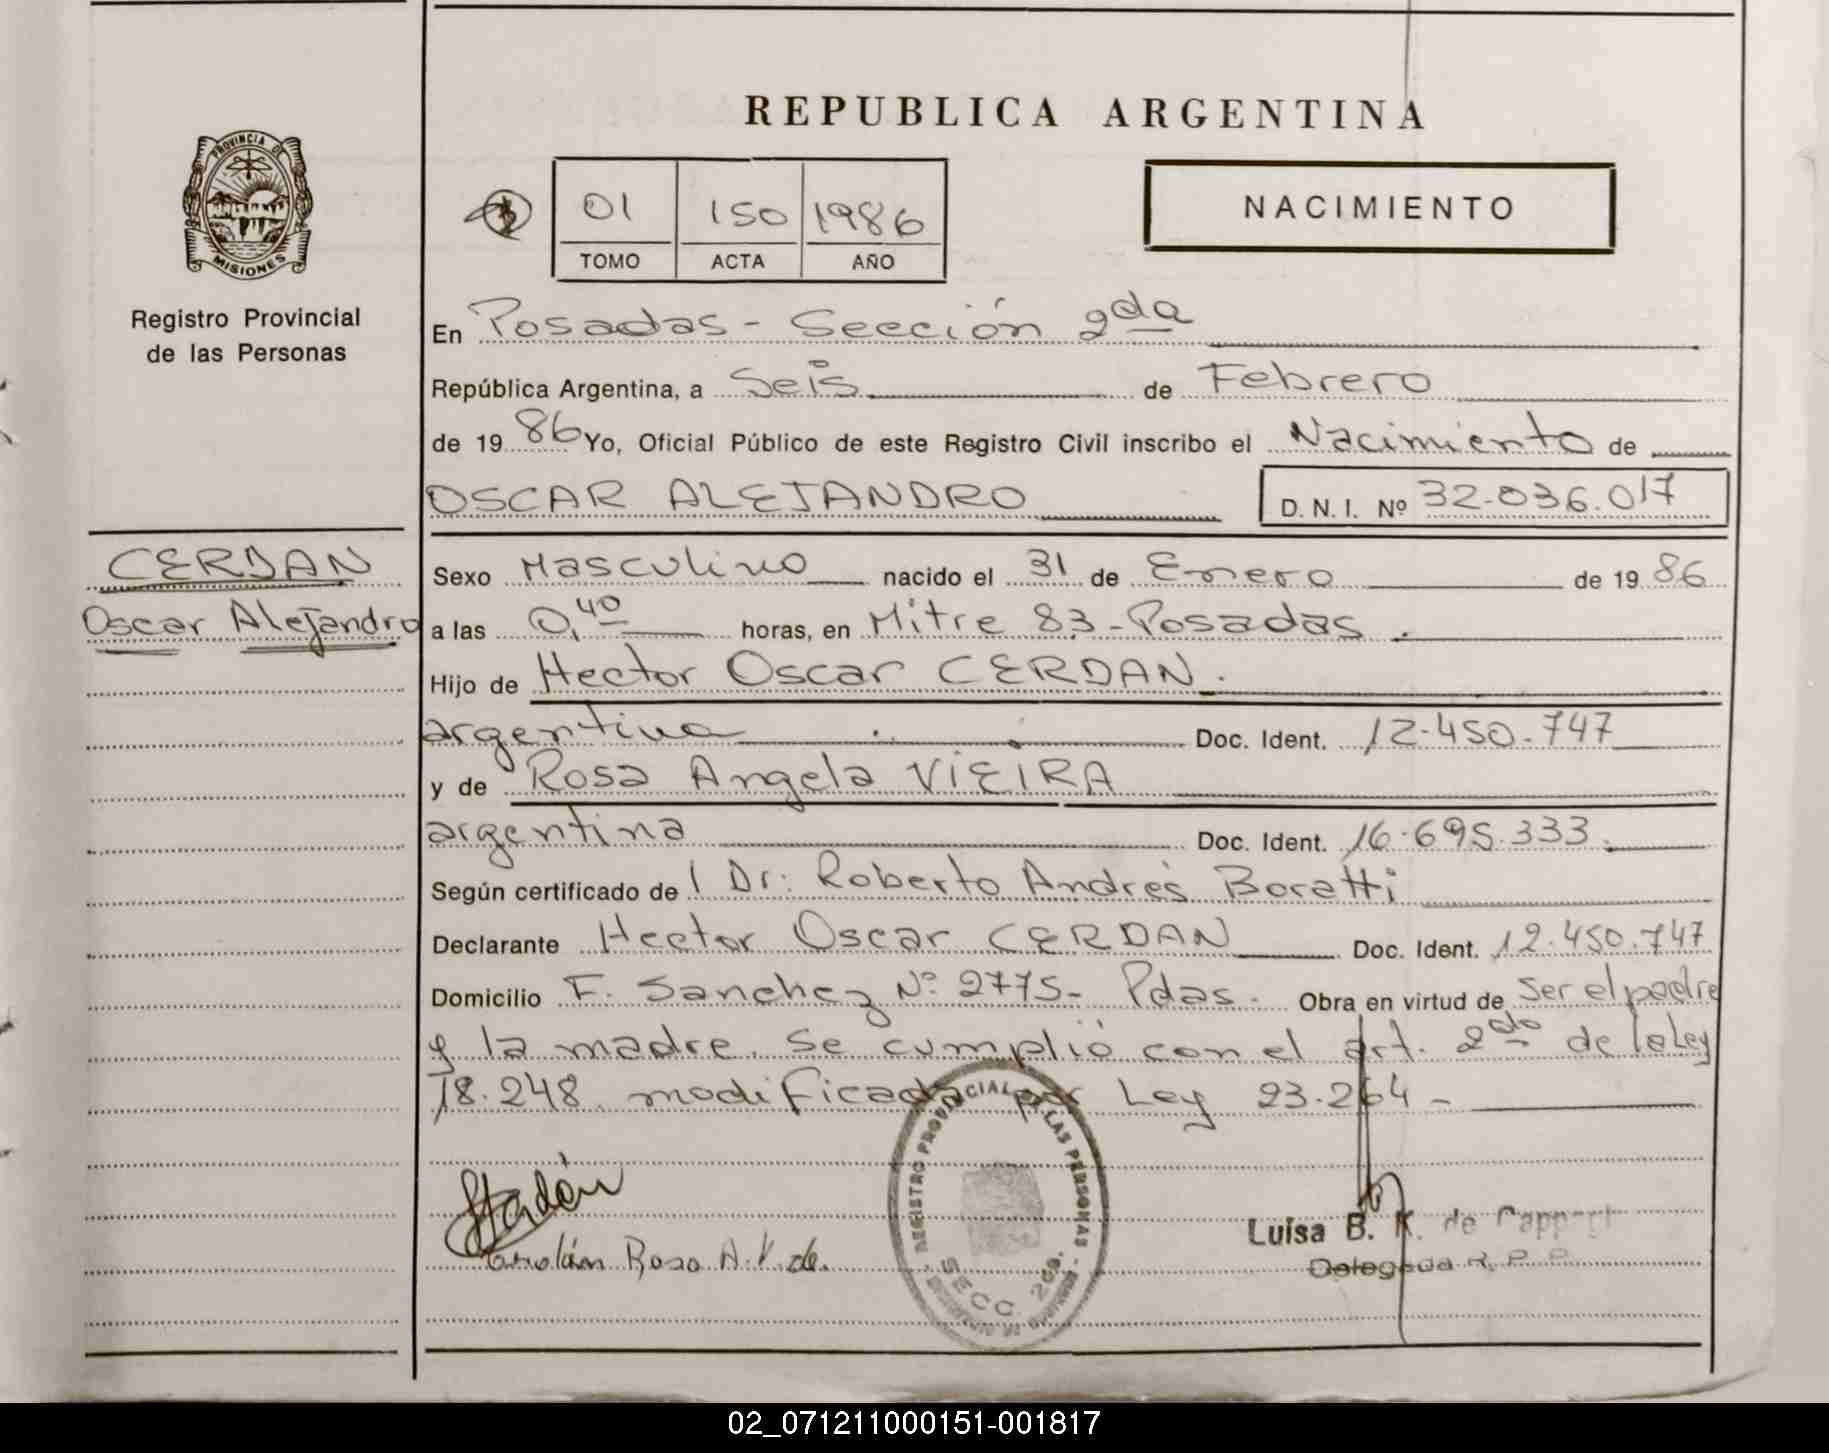 REPUBLICA ARGENTINA
PROVINCIA DE
MISIONES
Registro Provincial
de las Personas
01 150 1986
TOMO ACTA AÑO
NACIMIENTO
En Posadas - Sección 2da
República Argentina, a Seis de Febrero
de 19 86 Yo, Oficial Público de este Registro Civil inscribo el Nacimiento de
OSCAR ALEJANDRO D.N.I. Nº 32.036.017
CERDAN
Oscar Alejandro
Sexo Masculino nacido el 31 de Enero de 19 86
a las 0,40 horas, en Mitre 83 - Posadas.
Hijo de Hector Oscar CERDAN.
argentina Doc. Ident. 12.450.747
y de Rosa Angela VIEIRA
argentina Doc. Ident. 16.695.333.
Según certificado de l Dr: Roberto Andrés Boratti
Declarante Hector Oscar CERDAN Doc. Ident. 12.450.747
Domicilio F. Sanchez Nº 2775- Pdas. Obra en virtud de ser el padre
y la madre. Se cumplió con el art. 2do de la Ley
18.248 modificada por Ley 23.264 -
REGISTRO PROVINCIAL DE LAS PERSONAS
SECC. 2da.
Rosa A. V. de.
Luisa B. K. de
Delegada R. P. P.
02_071211000151-001817